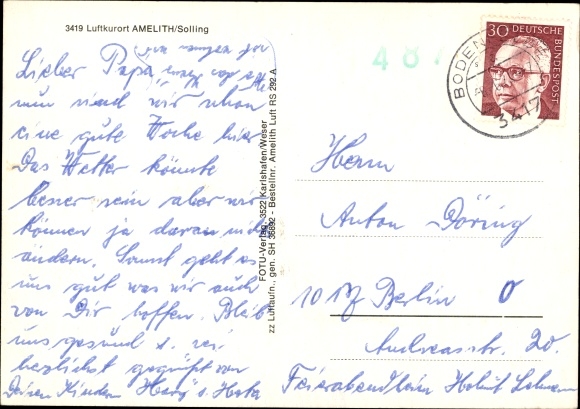 3419 Luftkurort AMELITH/Solling
Lieber Papa
nun sind wir schon
eine gute Woche hier
Das Wetter könnte
besser sein aber wir
können ja daran nichts
ändern. Sonst geht es
uns gut was wir auch
von Dir hoffen. Bleib
uns gesund u. sei
herzlichst gegrüßt von
Deinen Kindern
FOTU-Verlag, 3522 Karlshafen/Weser
zz Luftaufn., gen. SH 36892 - Bestellnr. Amelith Luft RS 292 A
487
BODEN
3417
30 DEUTSCHE BUNDESPOST
Herrn
Anton Döring
Berlin
Andreasstr. 20.
Feierabendheim